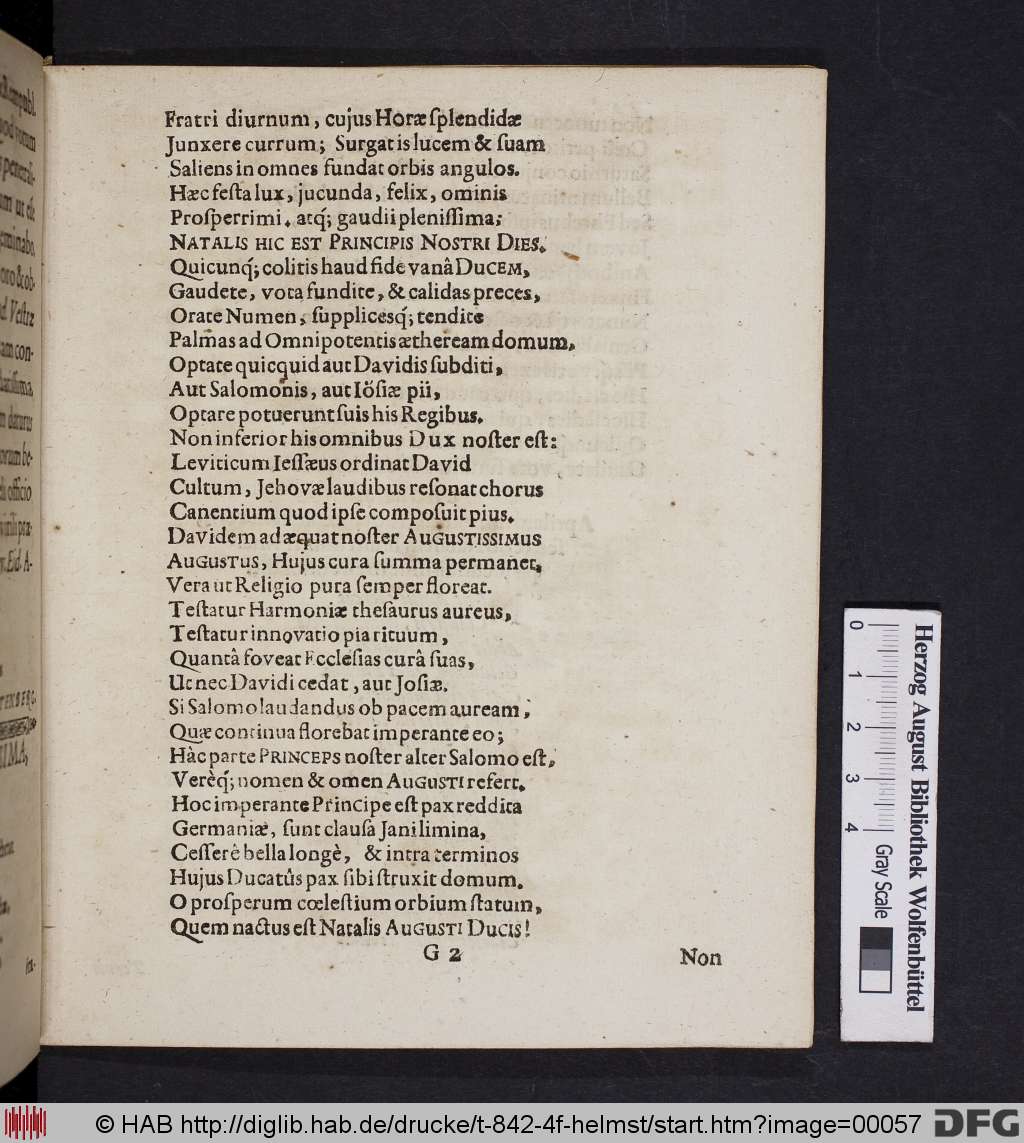 Fratri diurnum, cujus Horæ ſplendidæ
Junxere currum; Surgat is lucem & ſuam
Saliens in omnes fundat orbis angulos.
Hæc feſta lux, jucunda, felix, ominis
Proſperrimi, atq́; gaudii pleniſſima;
NATALIS HIC EST PRINCIPIS NOSTRI DIES.
Quicunq́; colitis haud fide vanâ DUCEM,
Gaudete, vota fundite, & calidas preces,
Orate Numen, ſupplicesq́; tendite
Palmas ad Omnipotentis æthe ream domum,
Optate quicquid aut Davidis ſubditi,
Aut Salomonis, aut Ioſiæ pii,
Optare potuerunt ſuis his Regibus.
Non inferior his omnibus Dux noſter eſt:
Leviticum Ieſſæus ordinat David
Cultum, Jehovæ laudibus reſonat chorus
Canentium quod ipſe compoſuit pius.
Davidem adæquat noſter AUGUSTISSIMUS
AUGUSTUS, Hujus cura ſumma permanet,
Vera ut Religio pura ſemper floreat.
Teſtatur Harmoniæ theſaurus aureus,
Teſtatur innovatio pia rituum,
Quantâ foveat Eccleſias curâ ſuas,
Ut nec Davidi cedat, aut Joſiæ.
Si Salomo laudandus ob pacem auream,
Quæ continua florebat imperante eo;
Hàc parte PRINCEPS noſter alter Salomo eſt,
Verèq́; nomen & omen AUGUSTI refert.
Hoc imperante Principe eſt pax reddita
Germaniæ, ſunt clauſa Jani limina,
Ceſſerê bella longè, & intra terminos
Hujus Ducatûs pax ſibi ſtruxit domum.
O proſperum cœleſtium orbium ſtatum,
Quem nactus eſt Natalis AUGUSTI DUCIS!
G 2 Non
0 1 2 3 4 Gray Scale
Herzog August Bibliothek Wolfenbüttel
© HAB http://diglib.hab.de/drucke/t-842-4f-helmst/start.htm?image=00057 DFG